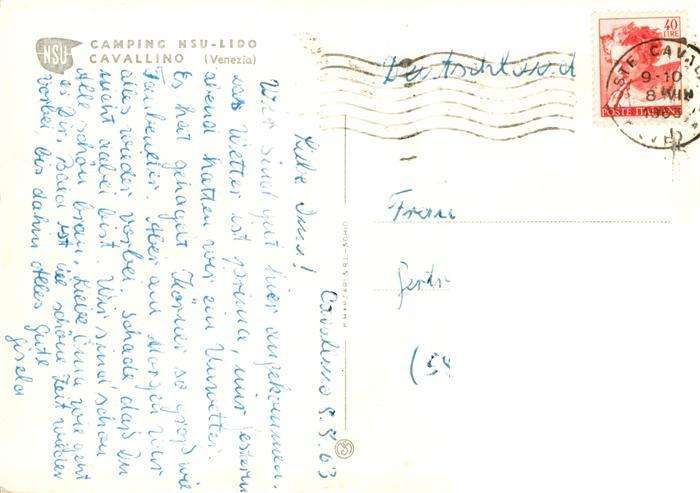 NSU
CAMPING NSU-LIDO
CAVALLINO (Venezia)
Cavallino 5.5.63
Liebe Oma!
Wir sind gut hier angekommen,
das Wetter ist prima, nur gestern
abend hatten wir ein Unwetter.
Es hat gehagelt Körner so groß wie
Taubeneier. Aber am Morgen war
alles wieder vorbei. Schade daß Du
nicht dabei bist. Wir sind schon
alle schön braun. Liebe Oma wie geht
es Dir, bald ist die schöne Zeit wieder
vorbei, bis dahin Alles Gute
Gisela
Deutschland
Frau
(54
40
LIRE
POSTE ITALIANE
9-10
8
35